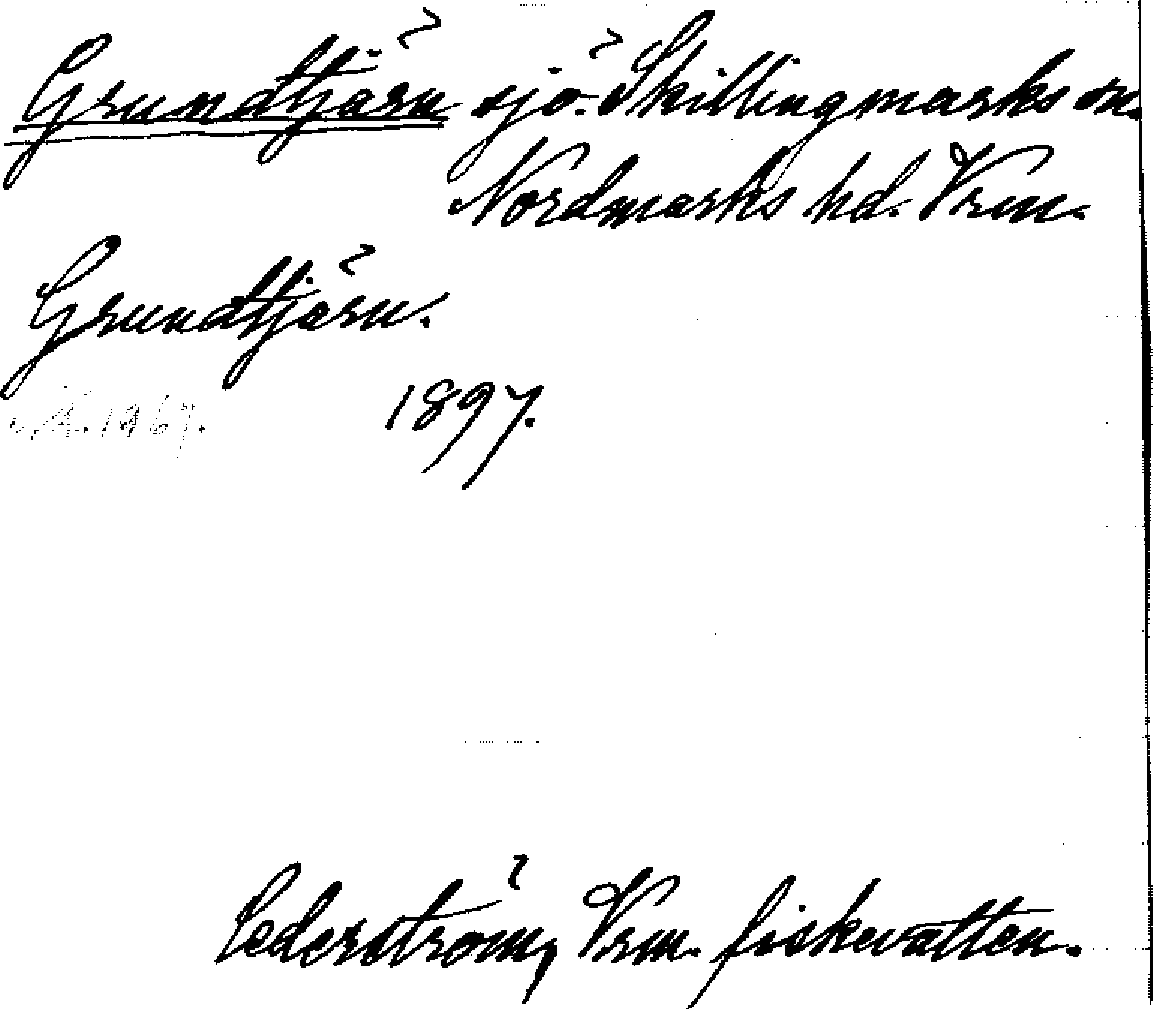 Grundtjärn sjö. Skillingmarks sn.
Nordmarks hd. Vrm.
Grundtjärn.
1897.
Cederström, Vrm. fiskevatten.